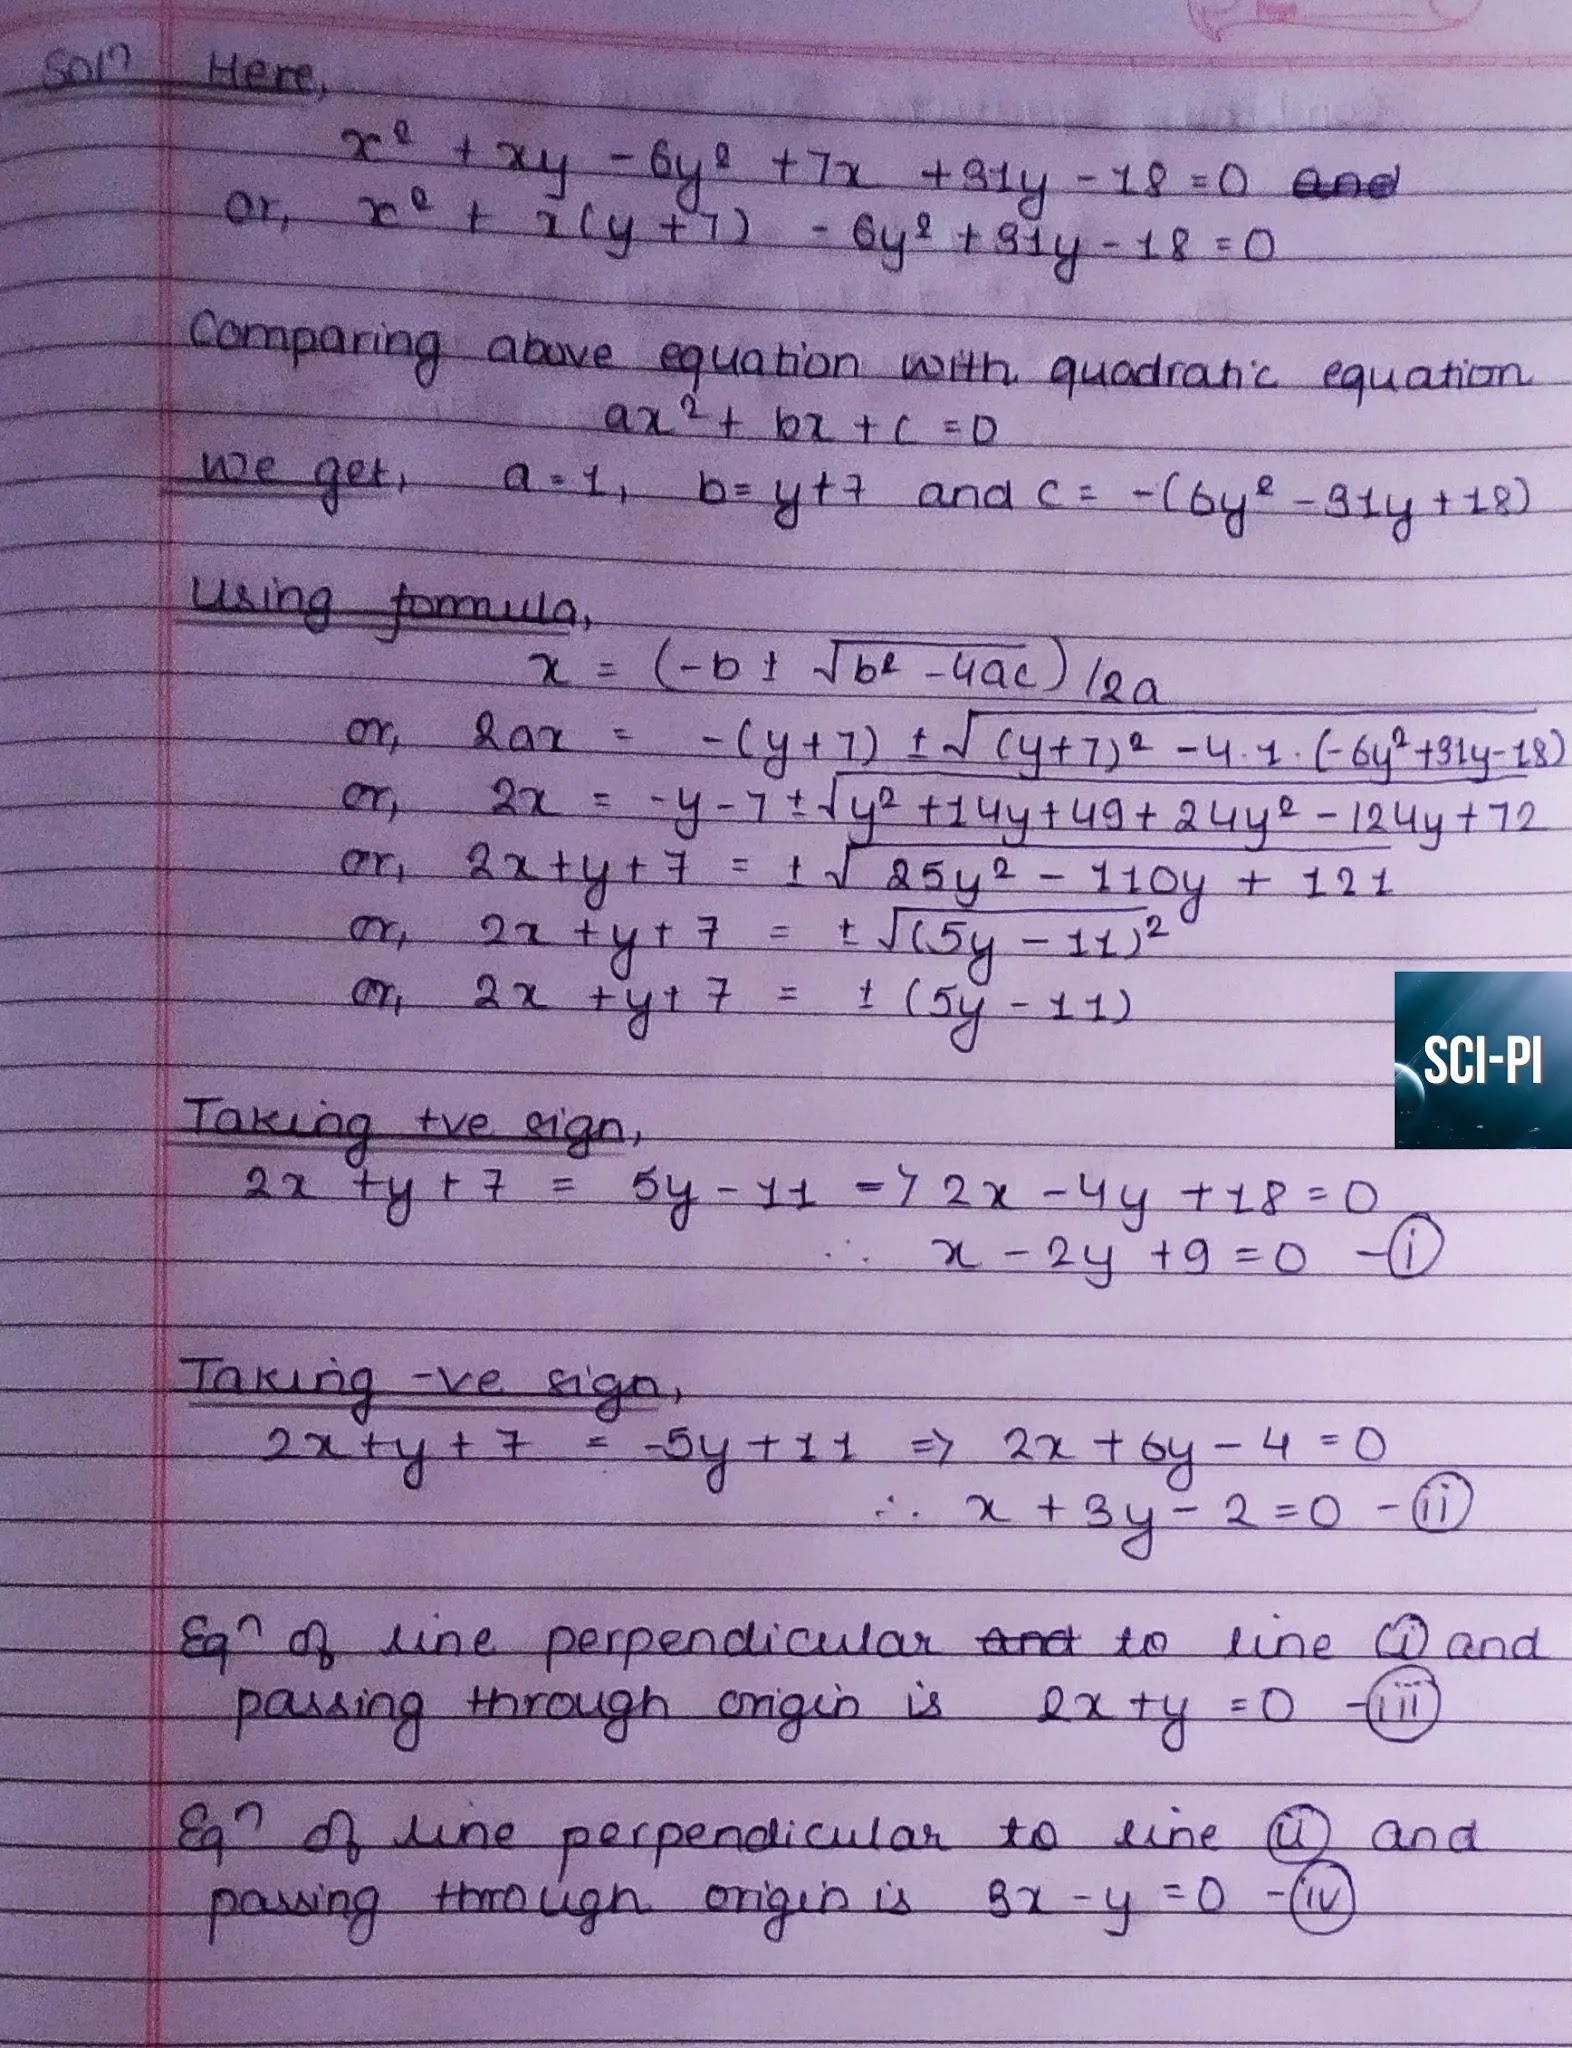 Solⁿ Here,
x² + xy - 6y² + 7x + 31y - 18 = 0 and
or, x² + x(y + 7) - 6y² + 31y - 18 = 0
Comparing above equation with quadratic equation
ax² + bx + c = 0
we get, a = 1, b = y + 7 and c = -(6y² - 31y + 18)
Using formula,
x = (-b ± √b² - 4ac) / 2a
or, 2ax = -(y + 7) ± √(y + 7)² - 4.1.(-6y² + 31y - 18)
or, 2x = -y - 7 ± √y² + 14y + 49 + 24y² - 124y + 72
or, 2x + y + 7 = ± √25y² - 110y + 121
or, 2x + y + 7 = ± √(5y - 11)²
or, 2x + y + 7 = ± (5y - 11)
SCI-PI
Taking +ve sign,
2x + y + 7 = 5y - 11 => 2x - 4y + 18 = 0
∴ x - 2y + 9 = 0 - (i)
Taking -ve sign,
2x + y + 7 = -5y + 11 => 2x + 6y - 4 = 0
∴ x + 3y - 2 = 0 - (ii)
Eqⁿ of line perpendicular and to line (i) and
passing through origin is 2x + y = 0 - (iii)
Eqⁿ of line perpendicular to line (ii) and
passing through origin is 3x - y = 0 - (iv)